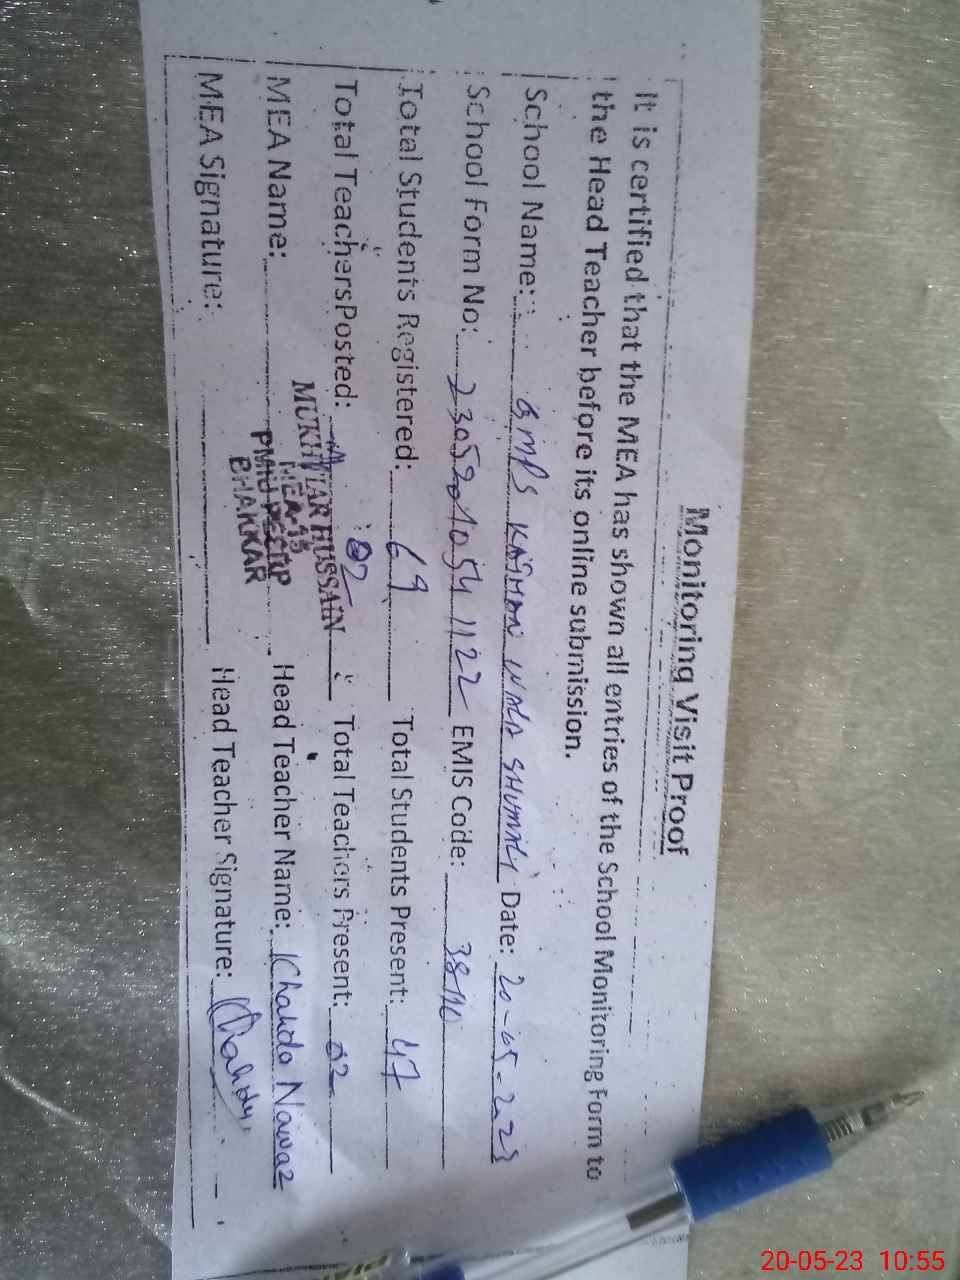 Monitoring Visit Proof
It is certified that the MEA has shown all entries of the School Monitoring Form to
the Head Teacher before its online submission.
School Name: GMPS WALA SHUMALI Date: 20-05-
School Form No: EMIS Code:
Total Students Registered: 69 Total Students Present: 47
Total Teachers Posted: 02 Total Teachers Present: 02
MEA Name: MUKHTIAR HUSSAIN Head Teacher Name: Khalida Nawaz
BHAKKAR
MEA Signature: Head Teacher Signature:
20-05-23 10:55